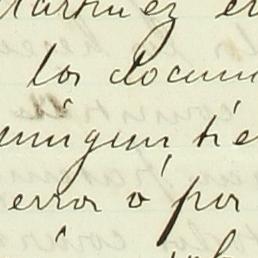 Martinez en
los docum
ningun tie
error ó por